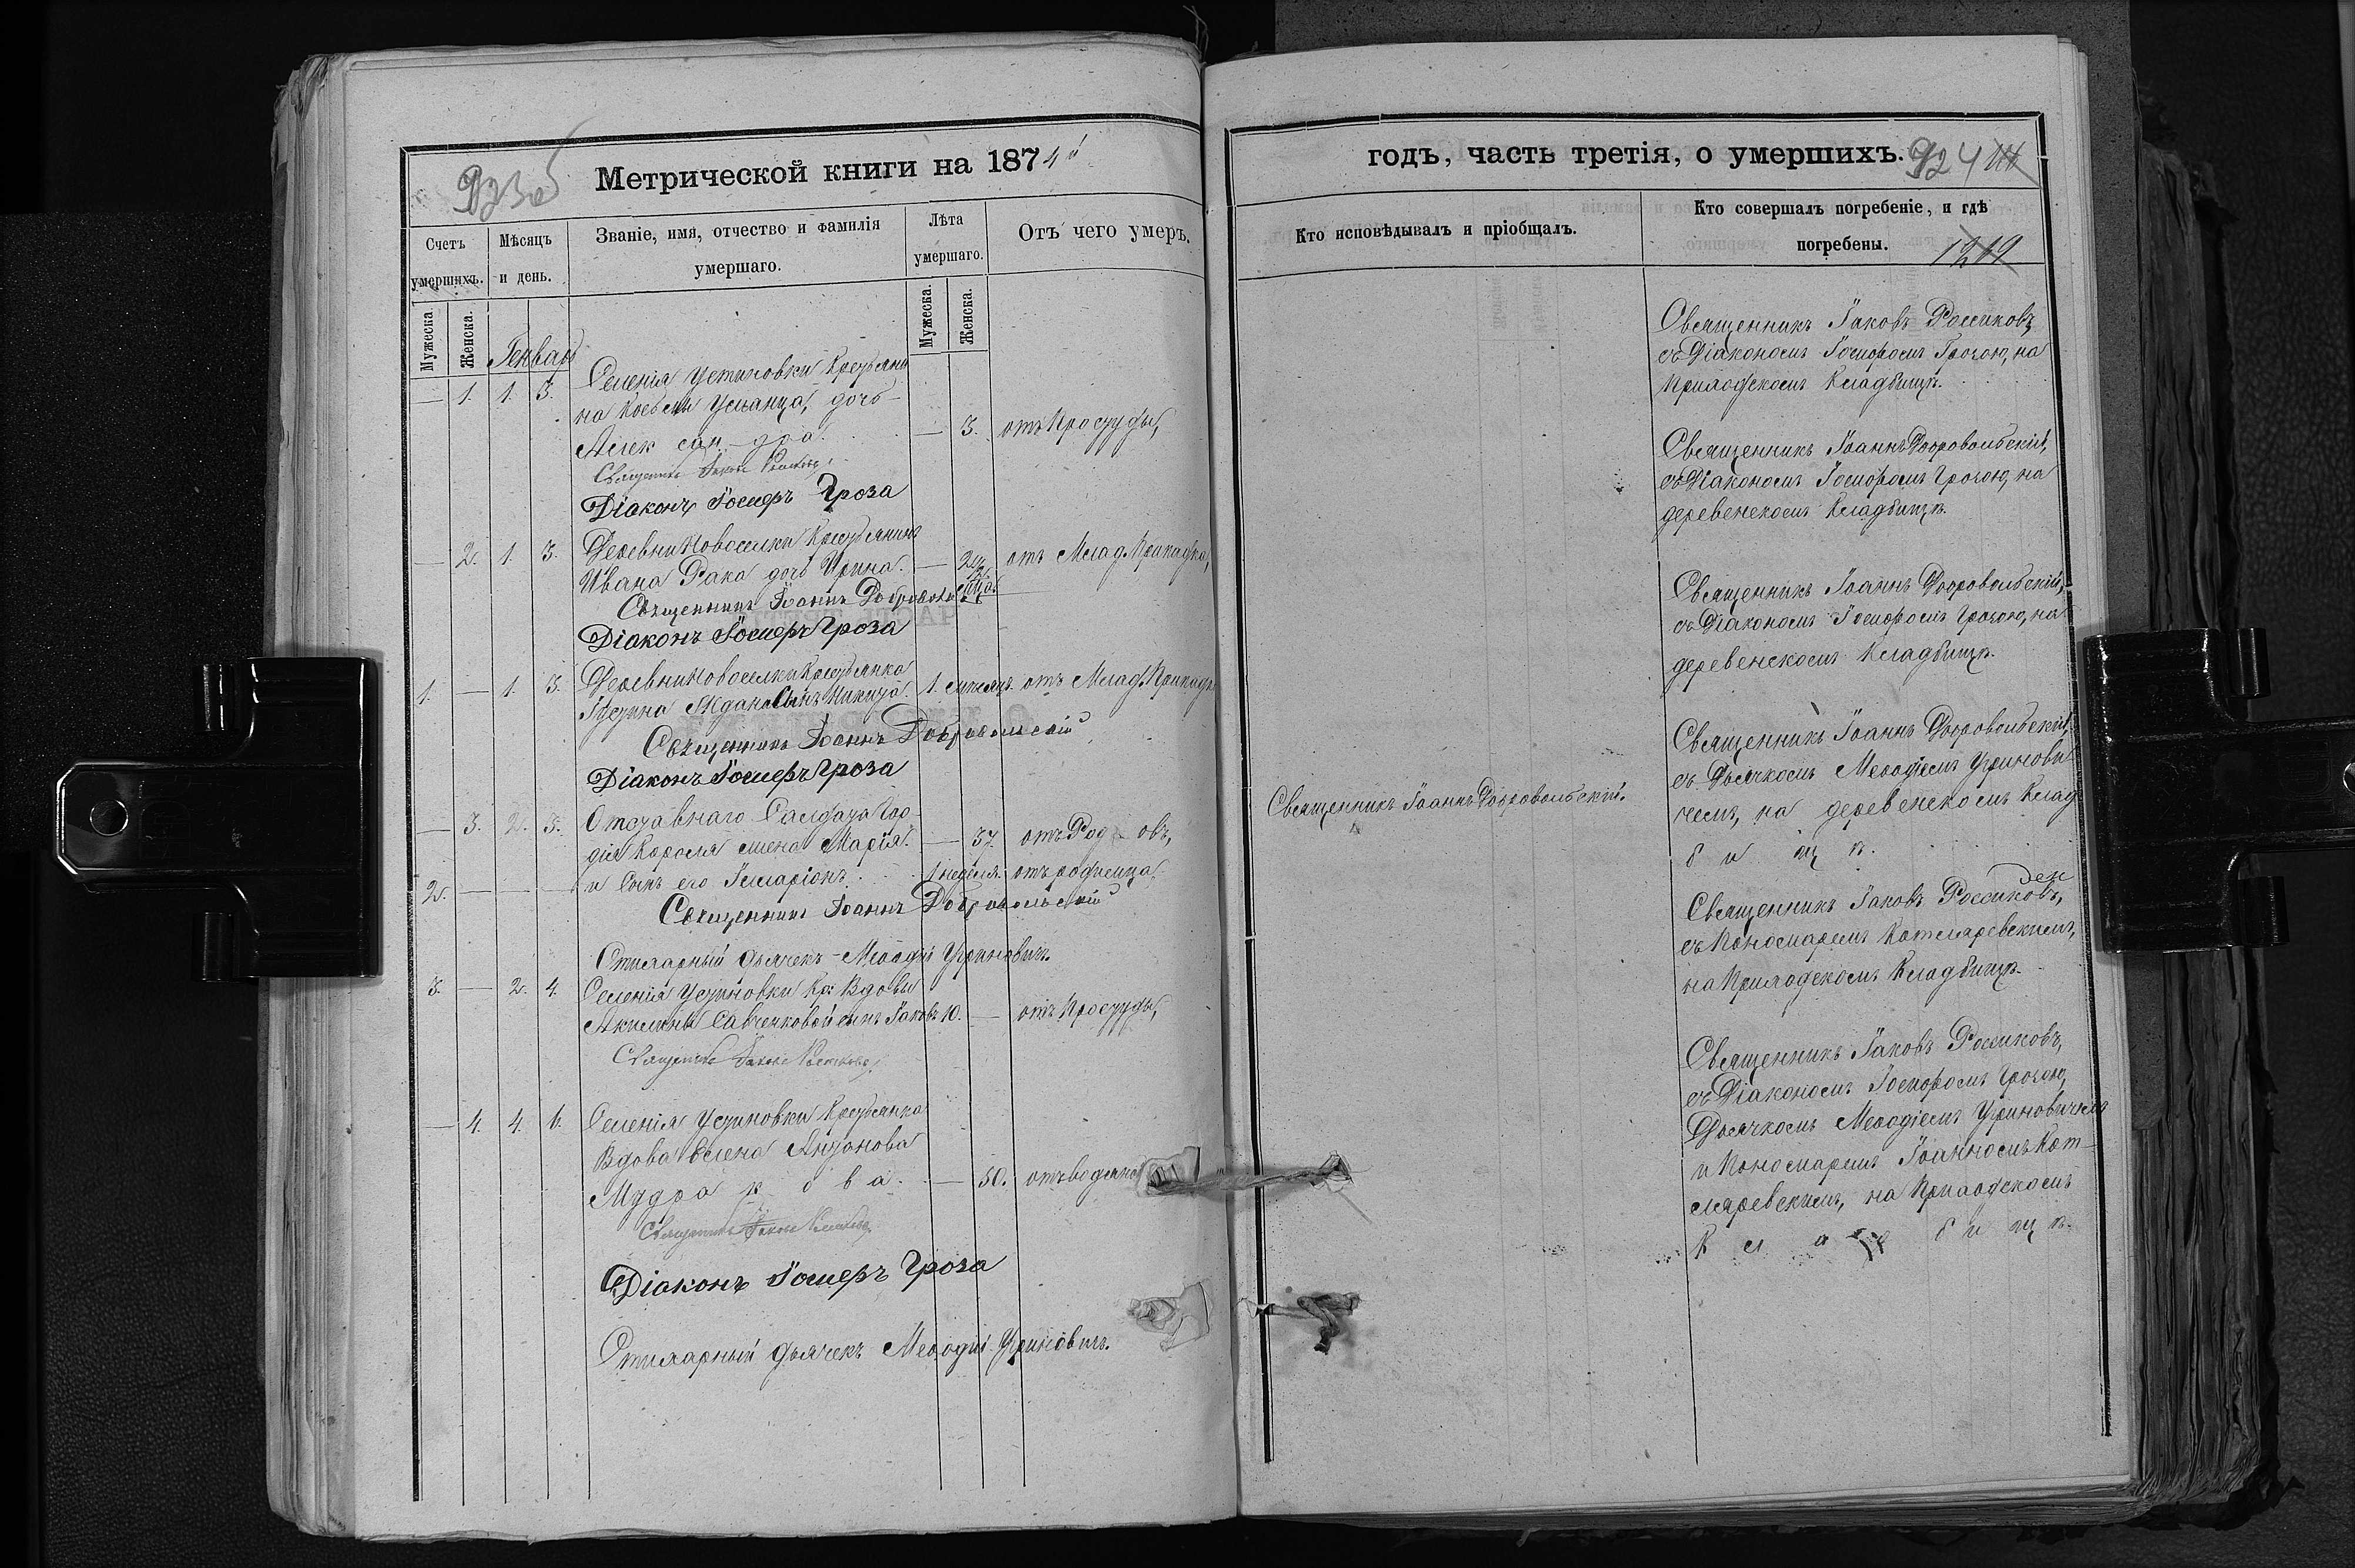 923об
Метрической книги на 1874й
Счетъ умершихъ.
Мѣсяцъ и день.
Званіе, имя, отчество и фамилія умершаго.
Лѣта умершаго.
Отъ чего умеръ.
Мужеска.
Женска.
Мужеска.
Женска.
Генварь
— 1. 1. 3. Селенія Устиновки Крестьяни
на дочь
Алек сан дра. — 3. отъ Простуды,
Священникъ Іаковъ Россиковъ
Діаконъ Іосифъ Гроза
— 2. 1. 3. Деревни Новоселки Крестьянина
Ивана Рака дочь Ирина. — отъ Млад. Припадка,
Священникъ Іоаннъ Добровольскій
Діаконъ Іосифъ Гроза
1. — 1. 3. Деревни Новоселки Крестьянка
Жданова Сынъ Никита. 1. мѣсяцъ. отъ Млад. Припадк
Священникъ Іоаннъ Добровольскій
Діаконъ Іосифъ Гроза
— 3. 2. 5. Отставнаго Салдата Гор
дія Короля жена Марія. — 37. отъ Род овъ,
2. — — — и Сынъ его Іларіонъ. 1 неделя. отъ родимца
Священникъ Іоаннъ Добровольскій
Стихарный дьячекъ Меѳодій Угриновичъ.
3. — 2. 4. Селенія Устиновки Кр: Вдовы
Акилины Савченковой сынъ Іаковъ 10. — отъ Простуды,
Священникъ Іаковъ Россиковъ
— 4. 4. 6. Селенія Устиновки Крестьянка
Вдова Елена Антонова
Мудра к о в а. — 50. отъ водянои
Священникъ Іаковъ Россиковъ
Діаконъ Іосифъ Гроза
Стихарный дьячекъ Меѳодій Угриновичъ.
годъ, часть третія, о умершихъ.
924
Кто исповѣдывалъ и пріобщалъ.
Кто совершалъ погребеніе, и гдѣ погребены.
1219
Священникъ Іаковъ Россиковъ,
съ Діакономъ Іосифомъ Грозою, на
Приходскомъ Кладбищѣ.
Священникъ Іоаннъ Добровольскій,
съ Діакономъ Іосифомъ Грозою, на
деревенскомъ Кладбищѣ.
Священникъ Іоаннъ Добровольскій,
съ Діакономъ Іосифомъ Грозою, на
деревенскомъ Кладбищѣ.
Священникъ Іоаннъ Добровольскій.
Священникъ Іоаннъ Добровольскій,
съ Дьячкомъ Меѳодіемъ Угринови
чемъ, на деревенскомъ Клад
б и щ ѣ.
Священникъ Іаковъ Россиковъ,
съ Пономаремъ Котляревскимъ,
на Приходскомъ Кладбищѣ.
Священникъ Іаковъ Россиковъ,
съ Діакономъ Іосифомъ Грозою,
Дьячкомъ Меѳодіемъ Угриновичемъ
и Пономаремъ Іоанномъ Кот
ляревскимъ, на Приходскомъ
К л а д б и щ ѣ.